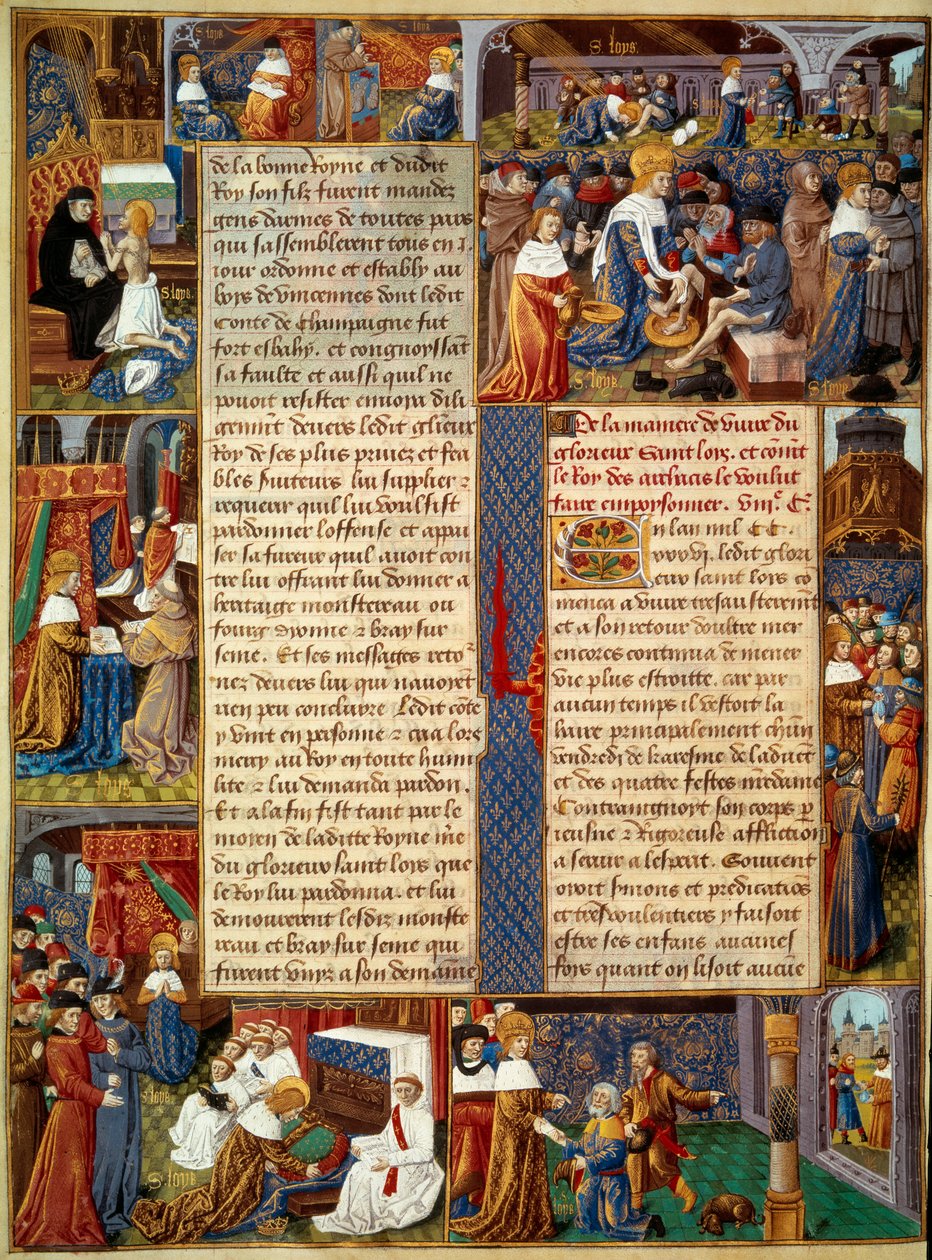 S. loys
S. loys
S. loys
S. loys.
de la bonne Royne et dudit
Roy son filz furent mandez
gens darmes de toutes pars
qui sassemblerent tous en .i.
iour ordonne et estably au
boys de vincennes dont ledit
Conte de Champaigne fut
fort esbahy. et congnoyssant
sa faulte et aussi quil ne
pouoit resister enuoia dili
genment deuers ledit glieux
Roy de ses plus priuez et fea
bles suiteurs lui supplier z
requerir quil lui voulsist
pardonner loffense et appai
ser sa fureur quil auoit con
tre lui offrant lui donner a
heritaige monstereau ou
fourg dyonne z bray sur
seine. Et ses messages reto
nez deuers lui qui nauoyent
rien peu conclure Ledit côte
y vint en personne z cria lors
mercy au Roy en toute humi
lite z lui demanda pardon.
Et a la fin fist tant par le
moyen de laditte Royne me
du glorieux saint loys que
le Roy lui pardonna. et lui
demourerent lesdiz monste
reau et bray sur seine qui
furent vnyz a son demaine
S. loys
S. loys
De la maniere de viure du
glorieux Saint loys. et comt
le Roy des arsacis le voulut
faire empoysonner. viii.e C.
En lan mil CC.
xxvi. ledit glori
eux saint loys co
menca a viure tresausterem̄t
et a son retour doultre mer
encores continua de mener
vie plus estroitte. car par
aucun temps il vestoit la
haire principalement chun
vendredi de karesme de laduēt
et des quatre festes medame
Contraingnoyt son corps p
ieusne z Rigoreuse affliction
a seruir a lesperit. Souuent
oyoit smons et predicatiōs
et tresvoulentiers y faisoit
estre ses enfans aucunes
foys quant on lisoit aucune
S. loys
S. loys
S. loys
S. loys